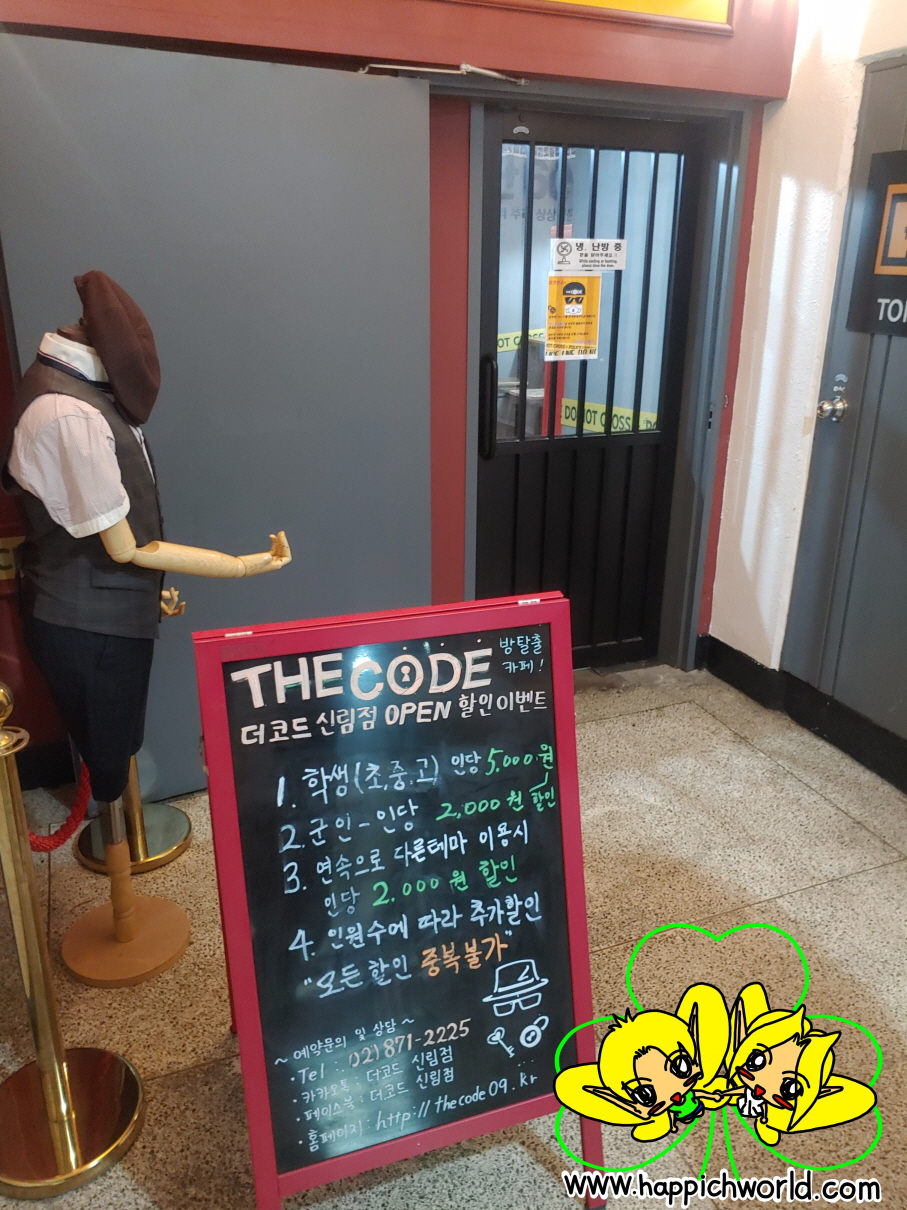 냉. 난방 중
문을 닫아주세요!!
While cooling or heating,
please close the door.
DO NOT CROSS
THE CODE
방탈출
카페!
더코드 신림점 OPEN 할인이벤트
1. 학생(초,중,고) 인당 5,000원
2. 군인 - 인당 2,000원 할인
3. 연속으로 다른테마 이용시
인당 2.000원 할인
4. 인원수에 따라 추가할인
"모든 할인 중복불가"
~ 예약문의 및 상담 ~
· Tel : 02) 871-2225
· 카카오톡 : 더코드 신림점
· 페이스북 : 더코드 신림점
· 홈페이지 : http://thecode09.kr
www.happichworld.com